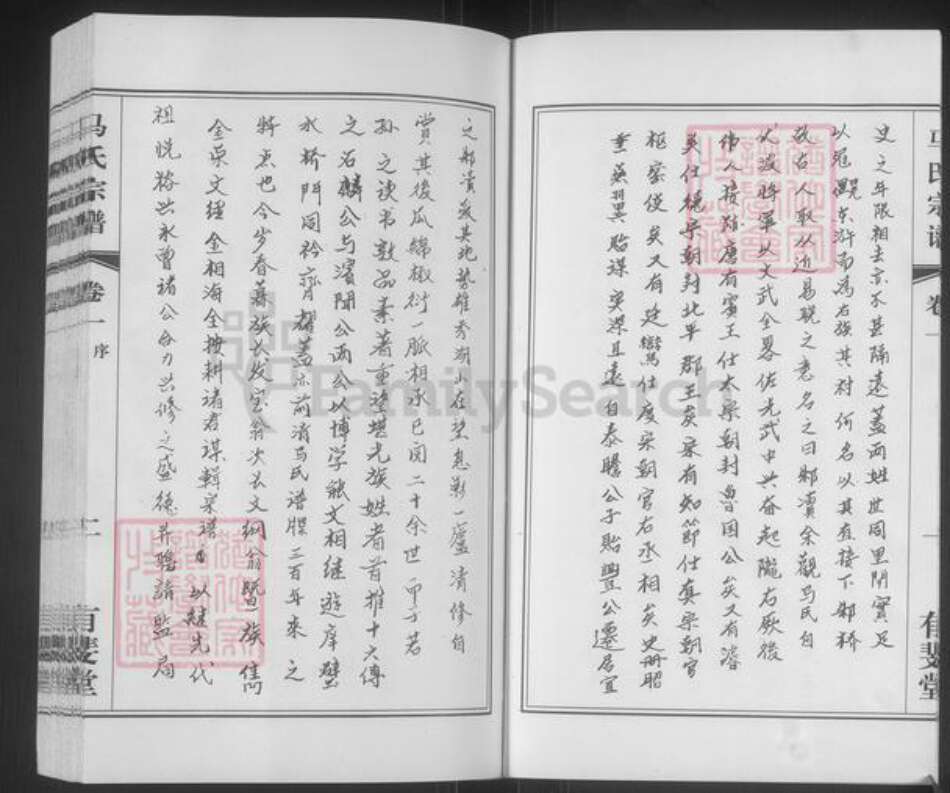 马氏宗谱
卷一
一
有斐堂
史之年限相去亦不甚隔远盖两姓世同里闬实足
以冠 京浒而为右族其对何名以其直接下邳桥
故古人取从近易晓之意名之曰邳渎余观马氏自
伏波将军以文武全略佐光武中兴奋起陇右厥后
伟人接踵唐有宾王仕太宗朝封鲁国公矣又有濬
英仕德宗朝封北平郡王矣宋有知节仕真宗朝官
枢密使矣又有廷鸾仕度宗朝官右丞相矣史册昭
垂燕翼贻谋实深且远自泰瞻公子贻丰公迁居宜
之邳渎爰其地势雄秀湖山在望息影一庐清修自
赏其后瓜绵椒衍一脉相承已阅二十余世 子若
孙之读书敦品素著重望堪光族姓者首推十六传
之石麟公与滨开公两公以博学能文相继游庠璧
水桥门同衿齐耀盖亦前清马氏谱牒三百年来之
特点也今岁春蒋族长收宝翁次长文纲翁暨族隽
金荣文经金相海全按耕诸君谋辑宗谱 以继先代
祖悦裕洪永曾诸公合力共修之盛德并聘谱监局
马氏宗谱
卷一
序
二
有斐堂
FamilySearch